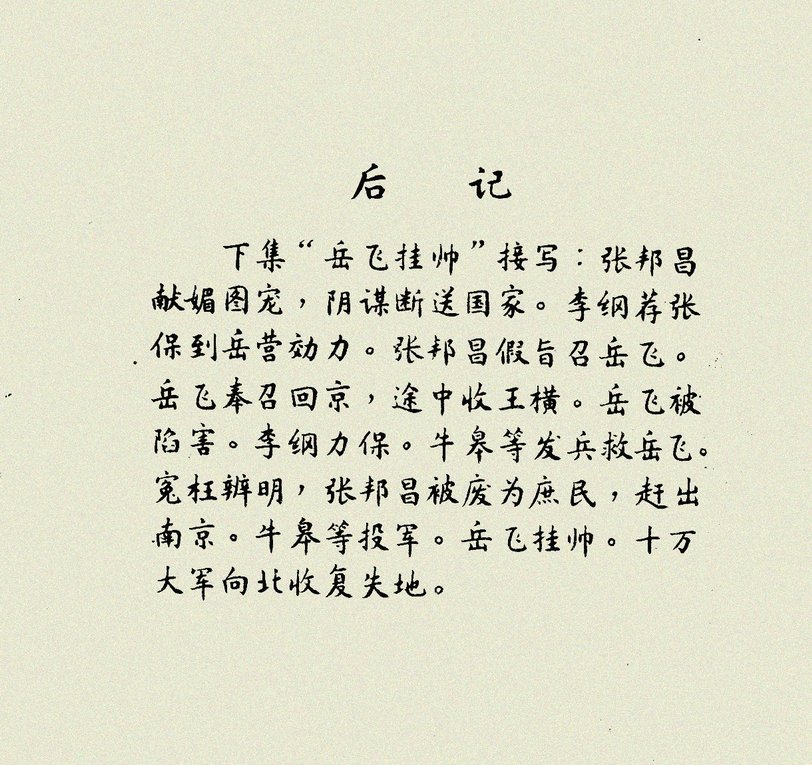 后 记
下集“岳飞挂帅”接写：张邦昌
献媚图宠，阴谋断送国家。李纲荐张
保到岳营効力。张邦昌假旨召岳飞。
岳飞奉召回京，途中收王横。岳飞被
陷害。李纲力保。牛皋等发兵救岳飞。
冤枉辨明，张邦昌被废为庶民，赶出
南京。牛皋等投军。岳飞挂帅。十万
大军向北收复失地。